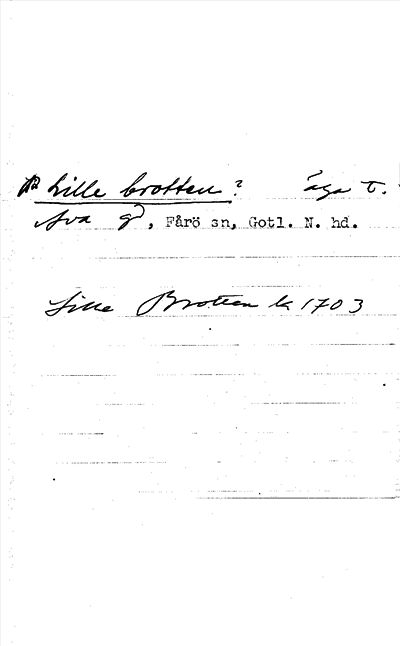 Lille brotten? äga t.
Ava gd, Fårö sn, Gotl. N. hd.
Lille Brotten lk 1703